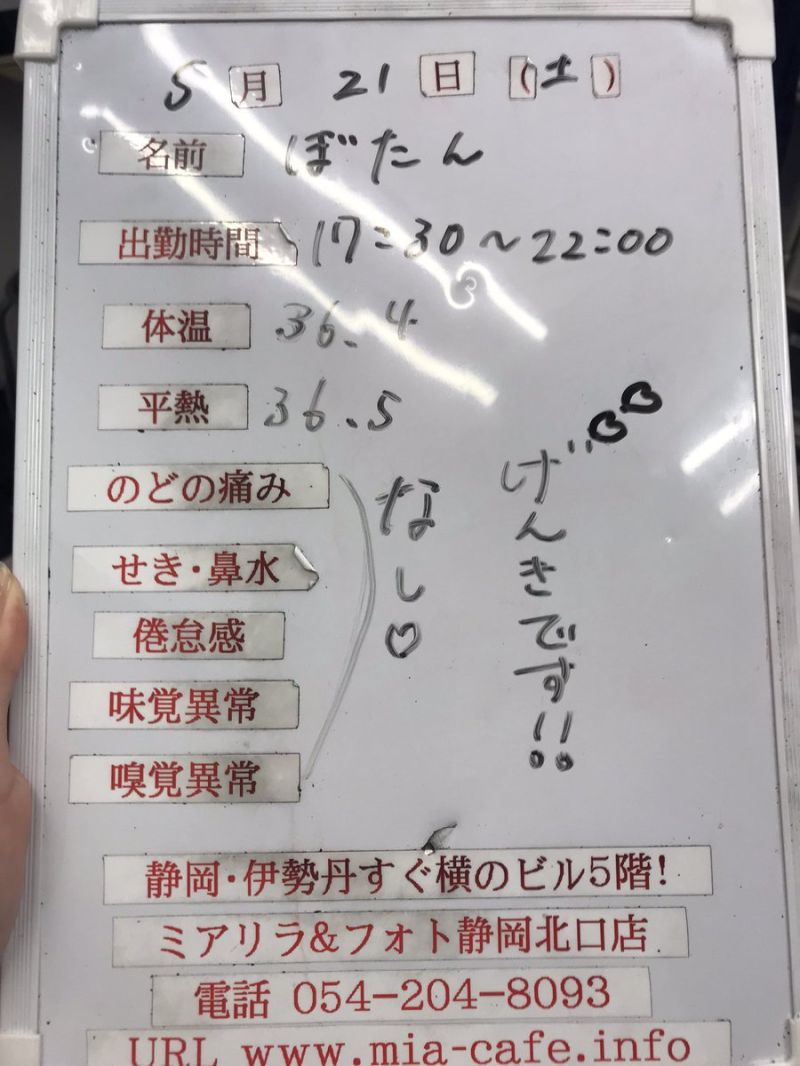 5月21日(土)
名前 ぼたん
出勤時間 17:30~22:00
体温 36.4
平熱 36.5
のどの痛み
せき・鼻水
倦怠感
味覚異常
嗅覚異常
なし♡
げんきです!!
静岡・伊勢丹すぐ横のビル5階!
ミアリラ&フォト静岡北口店
電話 054-204-8093
URL www.mia-cafe.info